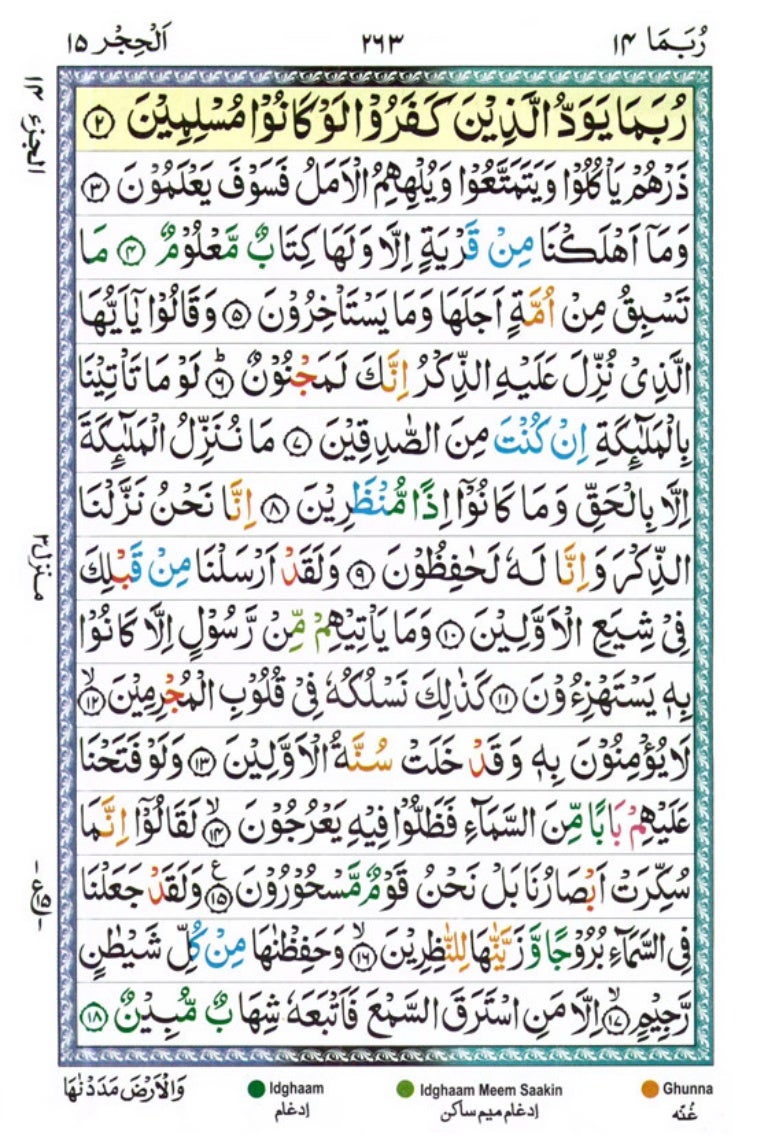 رُبَمَا ١۴
٢٦٣
اَلْحِجْر ١٥
الجزء ١۴
رُبَمَا يَوَدُّ الَّذِيْنَ كَفَرُوْا لَوْ كَانُوْا مُسْلِمِيْنَ ﴿٢﴾
ذَرْهُمْ يَاْكُلُوْا وَيَتَمَتَّعُوْا وَيُلْهِهِمُ الْاَمَلُ فَسَوْفَ يَعْلَمُوْنَ ﴿٣﴾
وَمَاۤ اَهْلَكْنَا مِنْ قَرْيَةٍ اِلَّا وَلَهَا كِتَابٌ مَّعْلُوْمٌ ﴿۴﴾ مَا
تَسْبِقُ مِنْ اُمَّةٍ اَجَلَهَا وَمَا يَسْتَاْخِرُوْنَ ﴿٥﴾ وَقَالُوْا يٰۤاَيُّهَا
الَّذِىْ نُزِّلَ عَلَيْهِ الذِّكْرُ اِنَّكَ لَمَجْنُوْنٌ ﴿٦﴾ؕ لَوْ مَا تَاْتِيْنَا
بِالْمَلٰٓئِكَةِ اِنْ كُنْتَ مِنَ الصّٰدِقِيْنَ ﴿٧﴾ مَا نُنَزِّلُ الْمَلٰٓئِكَةَ
اِلَّا بِالْحَقِّ وَمَا كَانُوْۤا اِذًا مُّنْظَرِيْنَ ﴿٨﴾ اِنَّا نَحْنُ نَزَّلْنَا
الذِّكْرَ وَاِنَّا لَهٗ لَحٰفِظُوْنَ ﴿٩﴾ وَلَقَدْ اَرْسَلْنَا مِنْ قَبْلِكَ
منزل ٣
فِىْ شِيَعِ الْاَوَّلِيْنَ ﴿١٠﴾ وَمَا يَاْتِيْهِمْ مِّنْ رَّسُوْلٍ اِلَّا كَانُوْا
بِهٖ يَسْتَهْزِءُوْنَ ﴿١١﴾ كَذٰلِكَ نَسْلُكُهٗ فِىْ قُلُوْبِ الْمُجْرِمِيْنَ ﴿١٢﴾ۙ
لَا يُؤْمِنُوْنَ بِهٖ وَقَدْ خَلَتْ سُنَّةُ الْاَوَّلِيْنَ ﴿١٣﴾ وَلَوْ فَتَحْنَا
عَلَيْهِمْ بَابًا مِّنَ السَّمَآءِ فَظَلُّوْا فِيْهِ يَعْرُجُوْنَ ﴿١۴﴾ۙ لَقَالُوْۤا اِنَّمَا
سُكِّرَتْ اَبْصَارُنَا بَلْ نَحْنُ قَوْمٌ مَّسْحُوْرُوْنَ ﴿١٥﴾ وَلَقَدْ جَعَلْنَا
فِى السَّمَآءِ بُرُوْجًا وَّزَيَّنّٰهَا لِلنّٰظِرِيْنَ ﴿١٦﴾ۙ وَحَفِظْنٰهَا مِنْ كُلِّ شَيْطٰنٍ
رَّجِيْمٍ ﴿١٧﴾ۙ اِلَّا مَنِ اسْتَرَقَ السَّمْعَ فَاَتْبَعَهٗ شِهَابٌ مُّبِيْنٌ ﴿١٨﴾
وَالْاَرْضَ مَدَدْنٰهَا
Idghaam
ادغام
Idghaam Meem Saakin
ادغام ميم ساكن
Ghunna
غُنّه